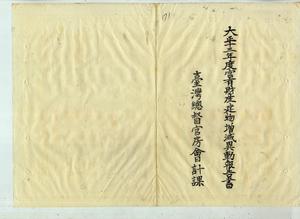 大正十三年度官有財産建物増減異動報告書
臺灣總督官房會計課